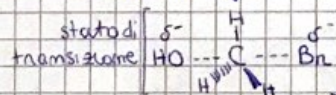 H
stato di [ δ⁻ δ⁻
transizione HO --- C --- Br
H H